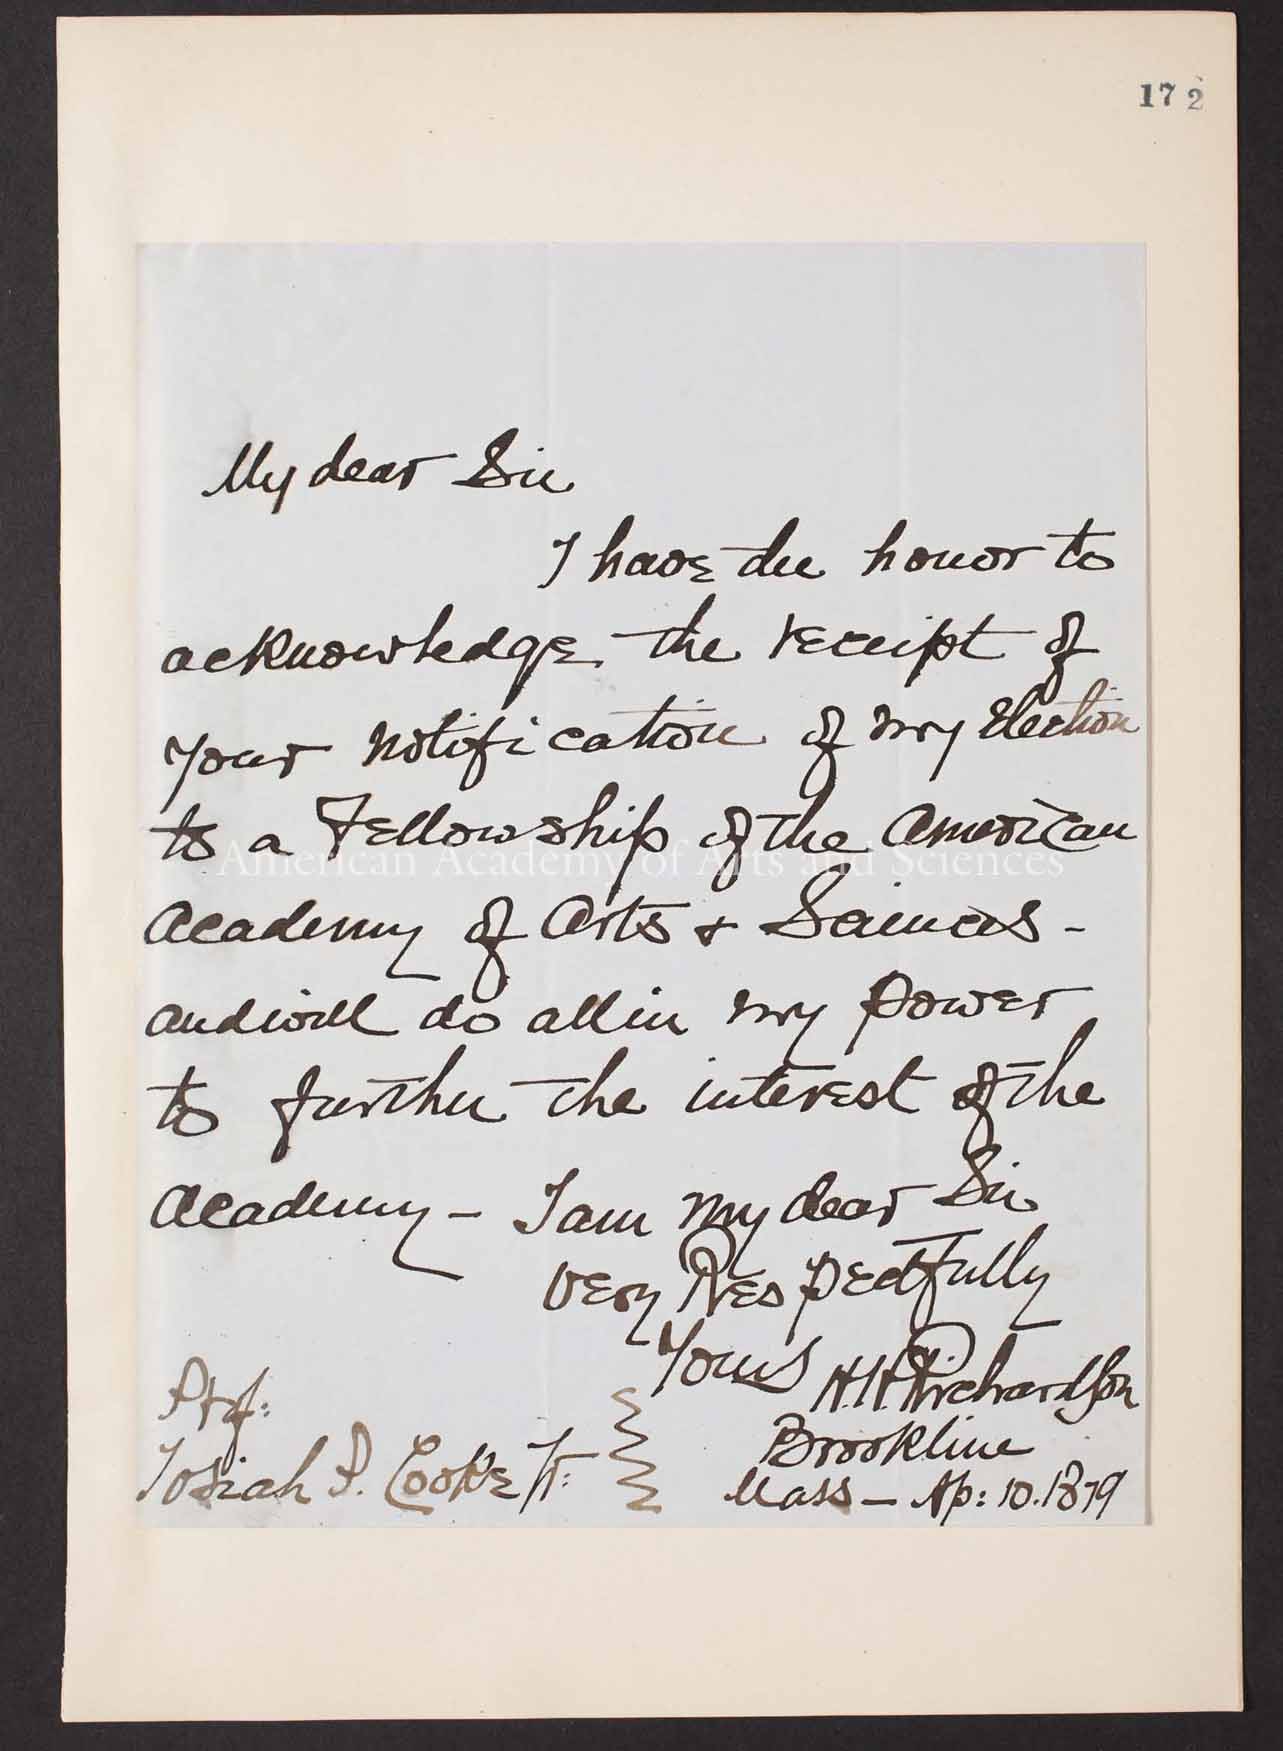 172
My dear Sir
I have the honor to
acknowledge the receipt of
your notification of my Election
to a Fellowship of the American
American Academy of Arts and Sciences
Academy of Arts & Sciences -
and will do all in my power
to further the interest of the
Academy - I am my dear Sir
Very Respectfully
Yours H.H. Richardson
Prof:
Brookline
Josiah P. Cooke Jr:
Mass - Ap: 10. 1879